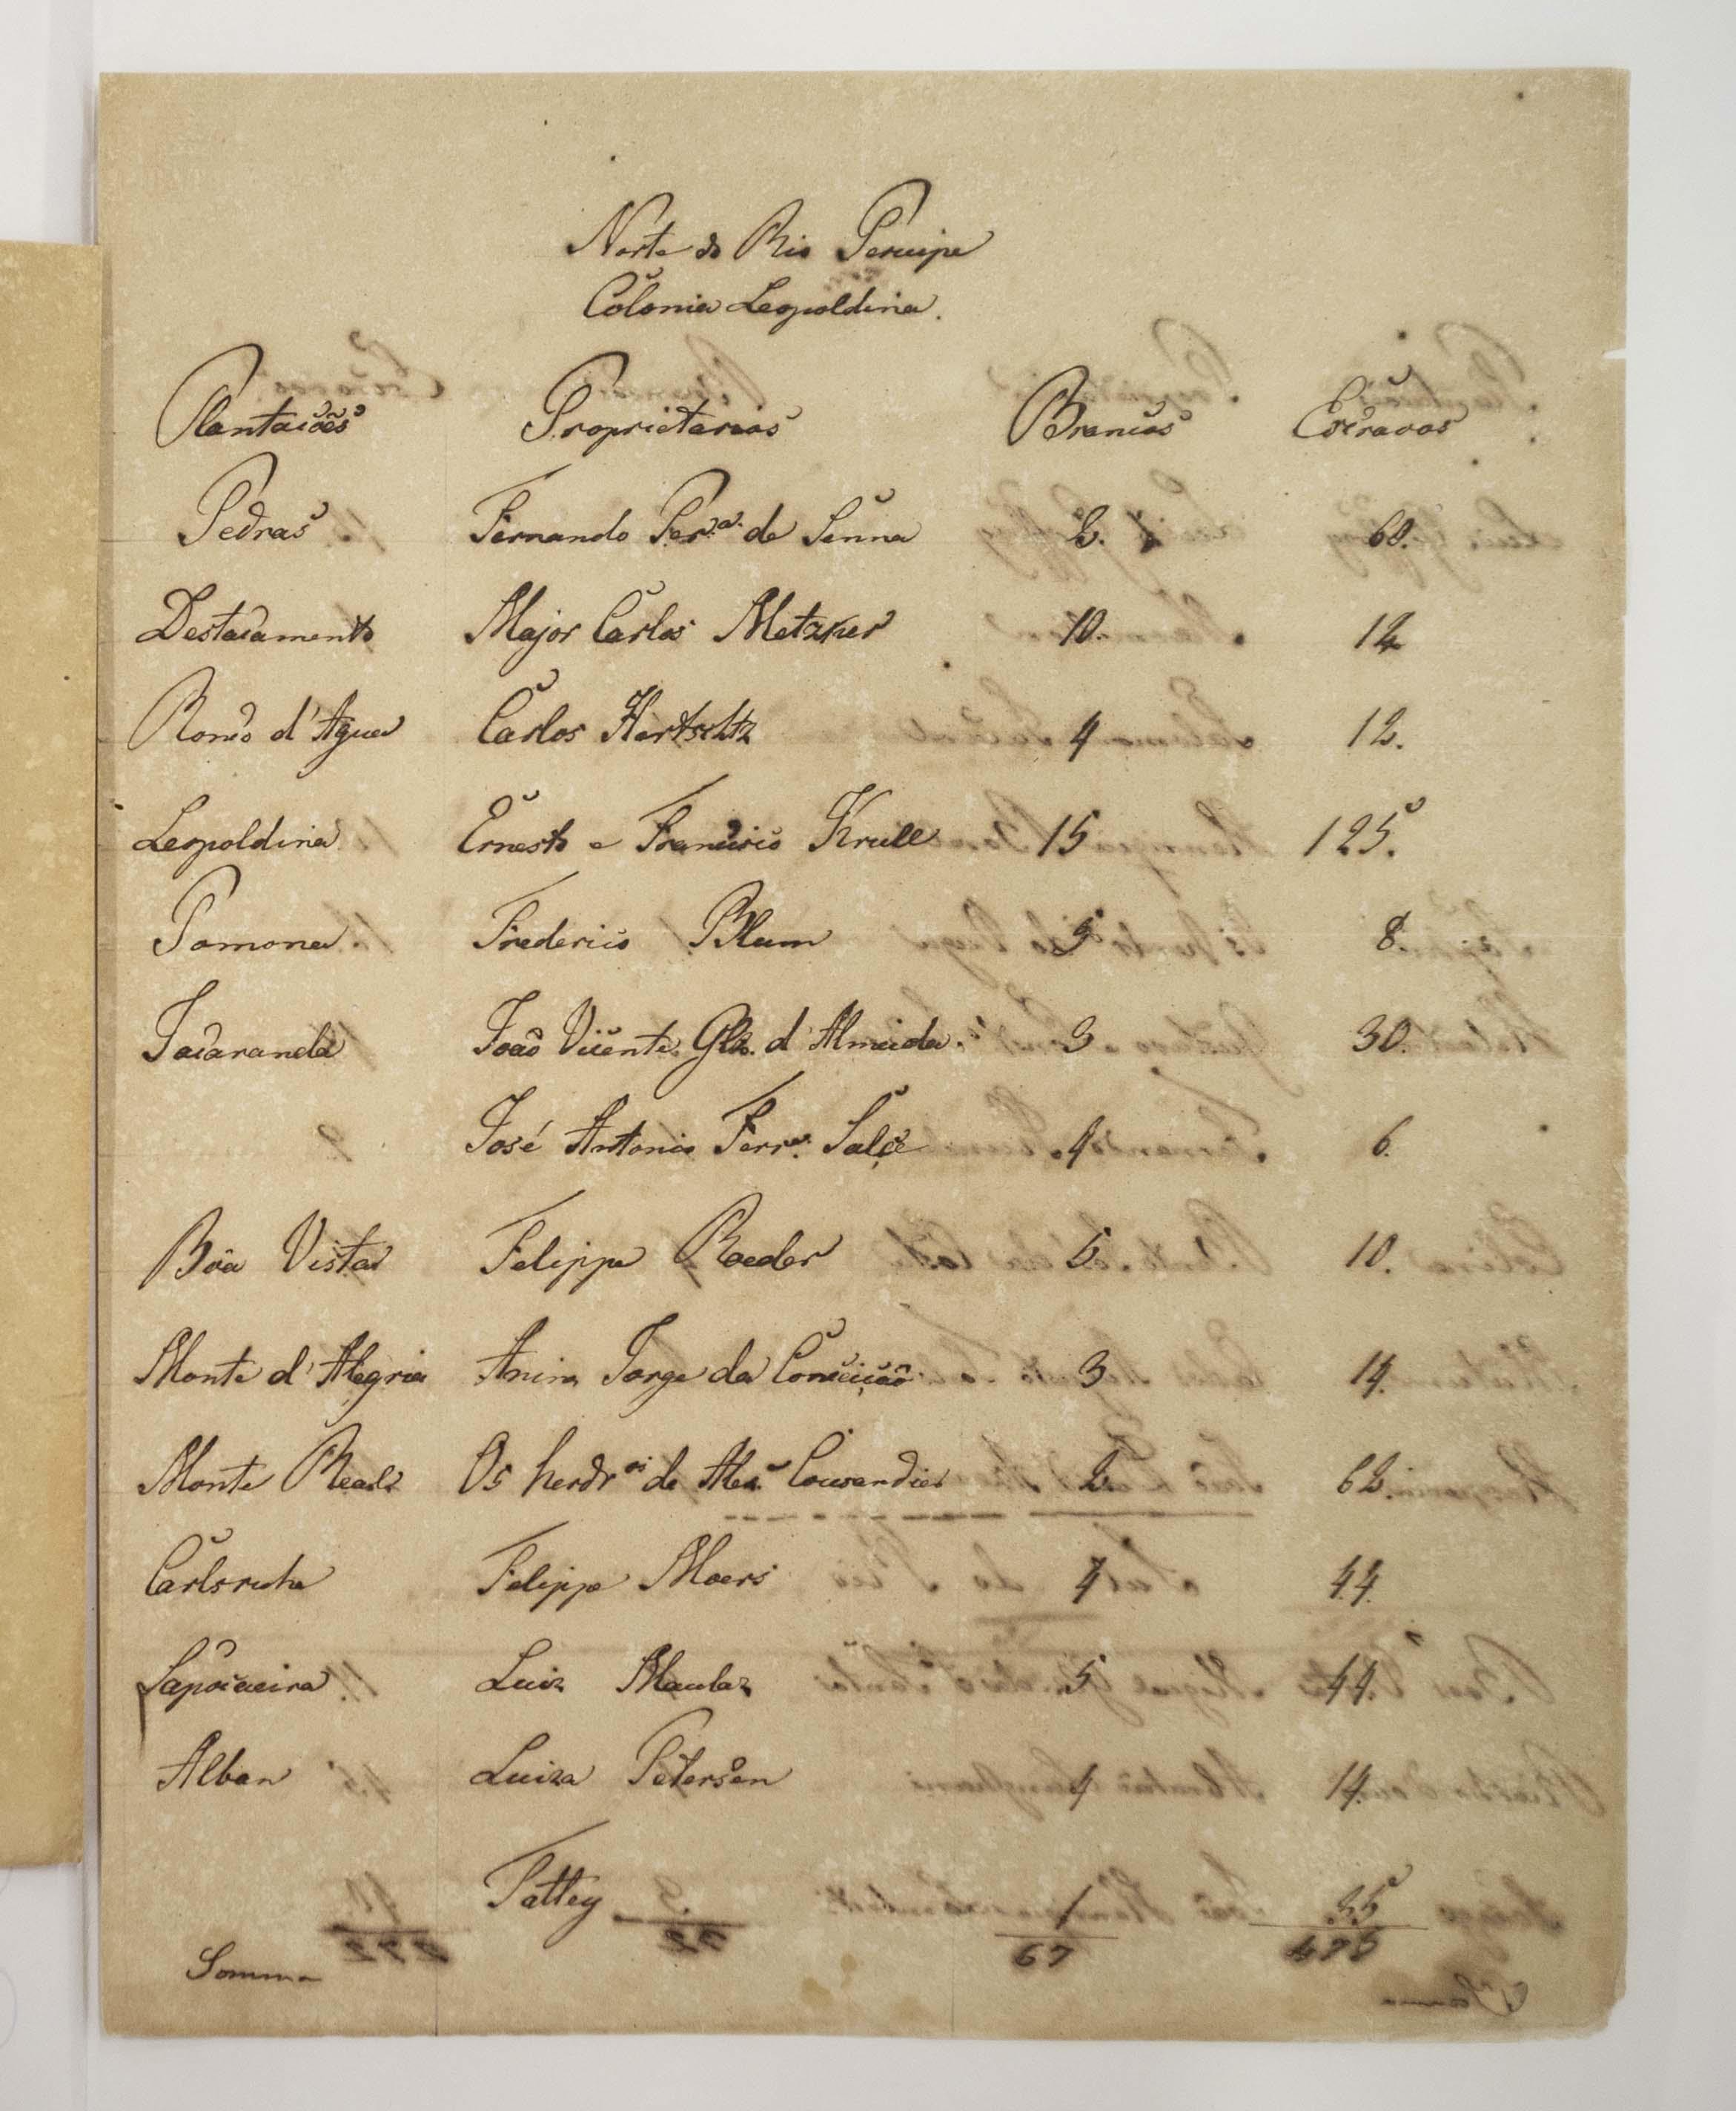 Norte do Rio Peruipe
Colonia Leopoldina.
Plantaicões Proprietarios Brancos Escravos
Pedras Fernando Per.ª de Senna 2. 60.
Destacamento Major Carlos Metzker 10. 12
Ronco d'Agua Carlos 4 12.
Leopoldina Ernesto e Francisco Krull 15 125.
Pomona. Frederico Blum 5 8.
Jacaranda João Vicente Glz. d'Almeida. 3 30.
José Antonio Ferr.ª 4 6.
Bôa Vista Felippe Roeder 5. 10.
Monte d'Alegria Anina Jorge da Conceição 3 14.
Monte Os herdr.os de Alex.e 2. 62.
Carlsruhe Felippe Moers 4 44.
Luiz Maulaz 5 44.
Alban Luiza Petersen 4 14.
Pattey 1 35
Somma 67 476